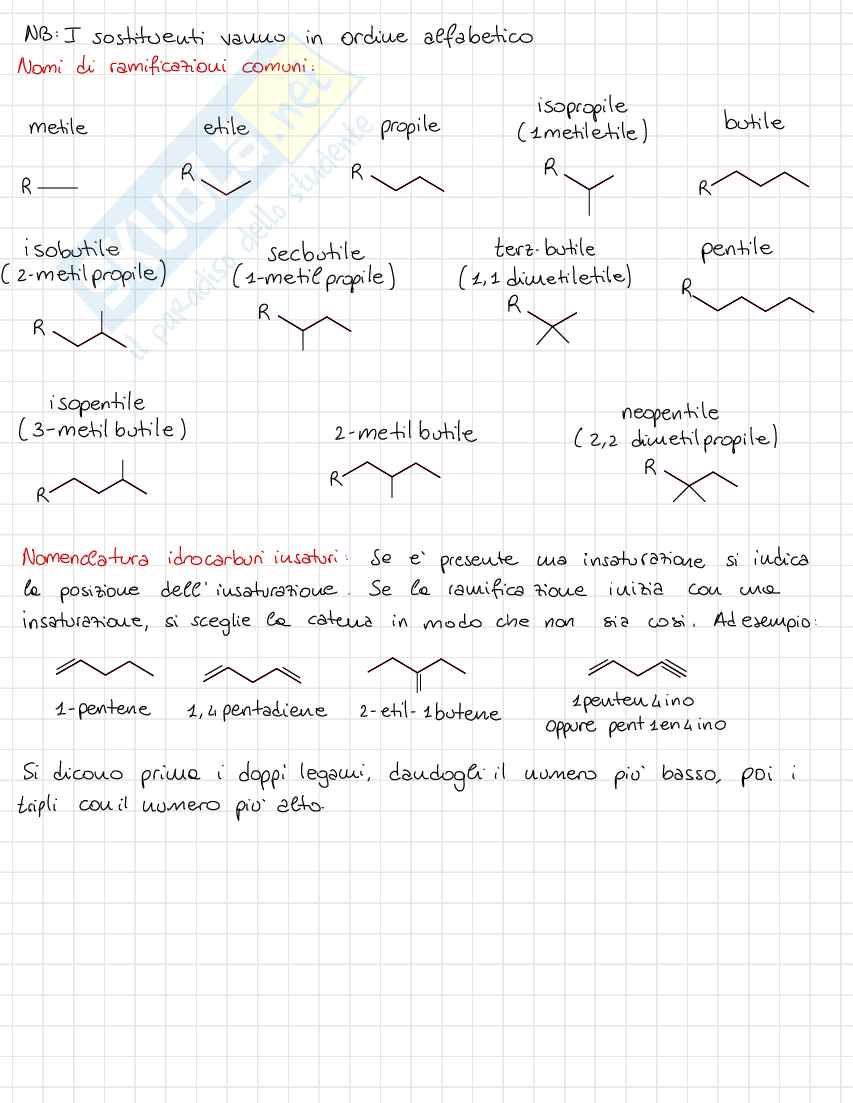 NB: I sostituenti vanno in ordine alfabetico
Nomi di ramificazioni comuni:
metile etile propile isopropile (1metiletile) butile
R R R R R
isobutile (2-metilpropile) secbutile (1-metilpropile) terz-butile (1,1 dimetiletile) pentile
R R R R
isopentile (3-metilbutile) 2-metilbutile neopentile (2,2 dimetilpropile)
R R R
Nomenclatura idrocarburi insaturi: Se è presente una insaturazione si indica
la posizione dell'insaturazione. Se la ramificazione inizia con una
insaturazione, si sceglie la catena in modo che non sia così. Ad esempio:
1-pentene 1,4 pentadiene 2-etil-1butene 1penten4ino
oppure pent1en4ino
Si dicono prima i doppi legami, dandogli il numero più basso, poi i
tripli con il numero più alto.
SKUOLA.net
il paradiso dello studente